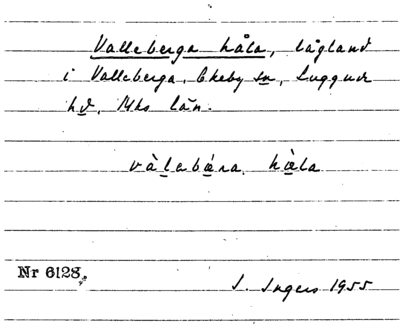 Valleberga håla, lågland
i Valleberga, Ekeby sn, Luggude
hd, Mhs län.
välebära håla
Nr 6128.
I. Ingers 1955